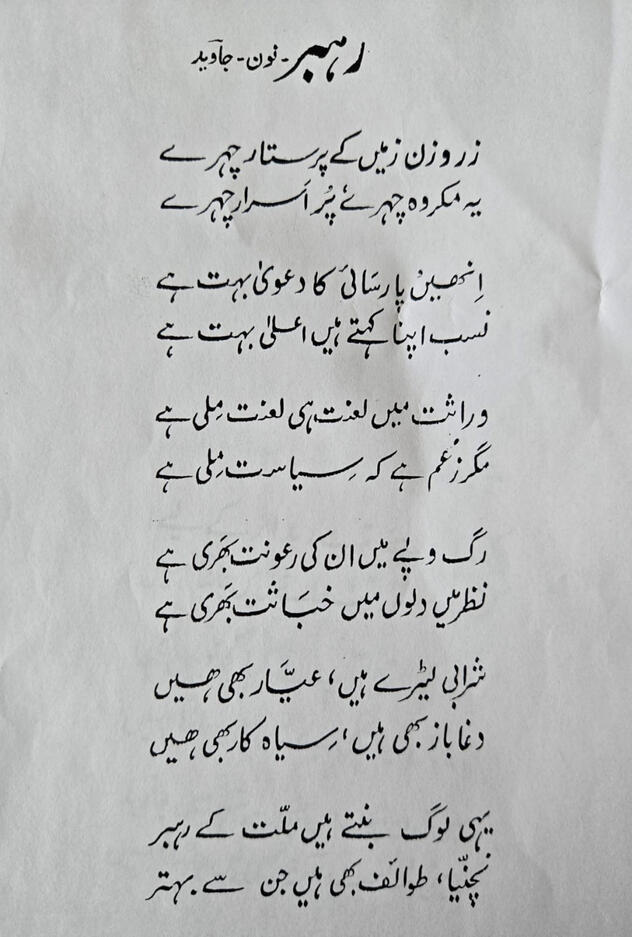 رہبر - نون - جاوید
زر و زن زمیں کے پرستار چہرے
یہ مکروہ چہرے پُر اَسرار چہرے
اِنھیں پارسَائی کا دعویٰ بہت ہے
نسب اپنا کہتے ہیں اعلیٰ بہت ہے
وراثت میں لعنت ہی لعنت مِلی ہے
مگر زُعم ہے کہ سِیاست مِلی ہے
رگ و پَے میں ان کی رعونت بھَری ہے
نظر میں دلوں میں خبَاثت بھَری ہے
شرابی لٹیرے ہیں، عیَّار بھی ھیں
دغا باز بھی ہیں، سِیاہ کار بھی ھیں
یہی لوگ بنتے ہیں ملّت کے رہبر
نچنّیا، طوائف بھی ہیں جن سے بہتر